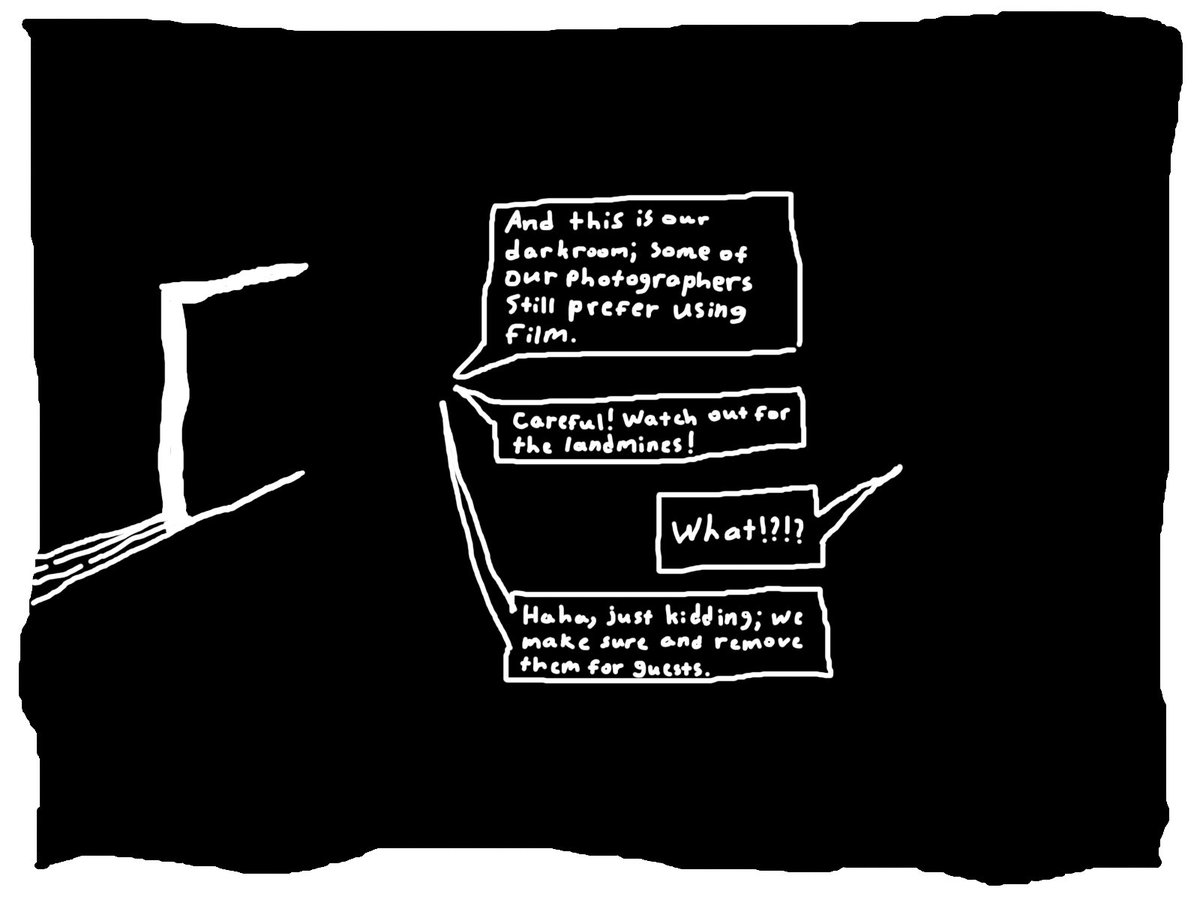 And this is our
darkroom; some of
our photographers
still prefer using
film.
Careful! Watch out for
the landmines!
What!?!?
Haha, just kidding; we
make sure and remove
them for guests.